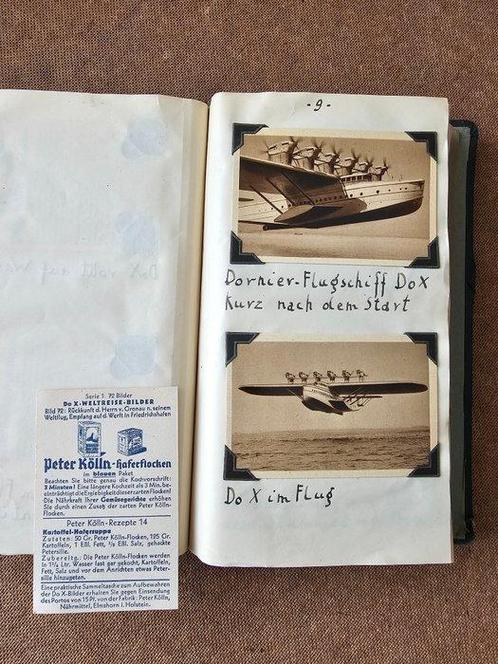 -9-
Dornier-Flugschiff DoX
kurz nach dem Start
Do X im Flug
Serie 1 72 Bilder
Do X-WELTREISE-BILDER
Bild 72: Rückkunft d. Herrn v. Gronau n. seinem
Weltflug, Empfang auf d. Werft in Friedrichshafen
Peter Kölln-Haferflocken
im blauen Paket
Beachten Sie bitte genau die Kochvorschrift:
3 Minuten! Eine längere Kochzeit als 3 Min. be-
einträchtigt die Ergiebigkeit dieser zarten Flocken!
Die Nährkraft Ihrer Gemüsegerichte erhöhen
Sie durch einen Zusatz der zarten Peter Kölln-
Flocken.
Peter Kölln-Rezepte 14
Kartoffel-Hafersuppe
Zutaten: 50 Gr. Peter Kölln-Flocken, 125 Gr.
Kartoffeln, 1 Eßl. Fett, ½ Eßl. Salz, gehackte
Petersilie.
Zubereitg.: Die Peter Kölln-Flocken werden
in 1¼ Ltr. Wasser last gar gekocht, Kartoffeln,
Fett, Salz und vor dem Anrichten etwas Peter-
silie hinzugetan.
Eine praktische Sammeltasche zum Aufbewahren
der Do X-Bilder erhalten Sie gegen Einsendung
des Portos von 15 Pf. von der Fabrik: Peter Kölln,
Nährmittel, Elmshorn i. Holstein.